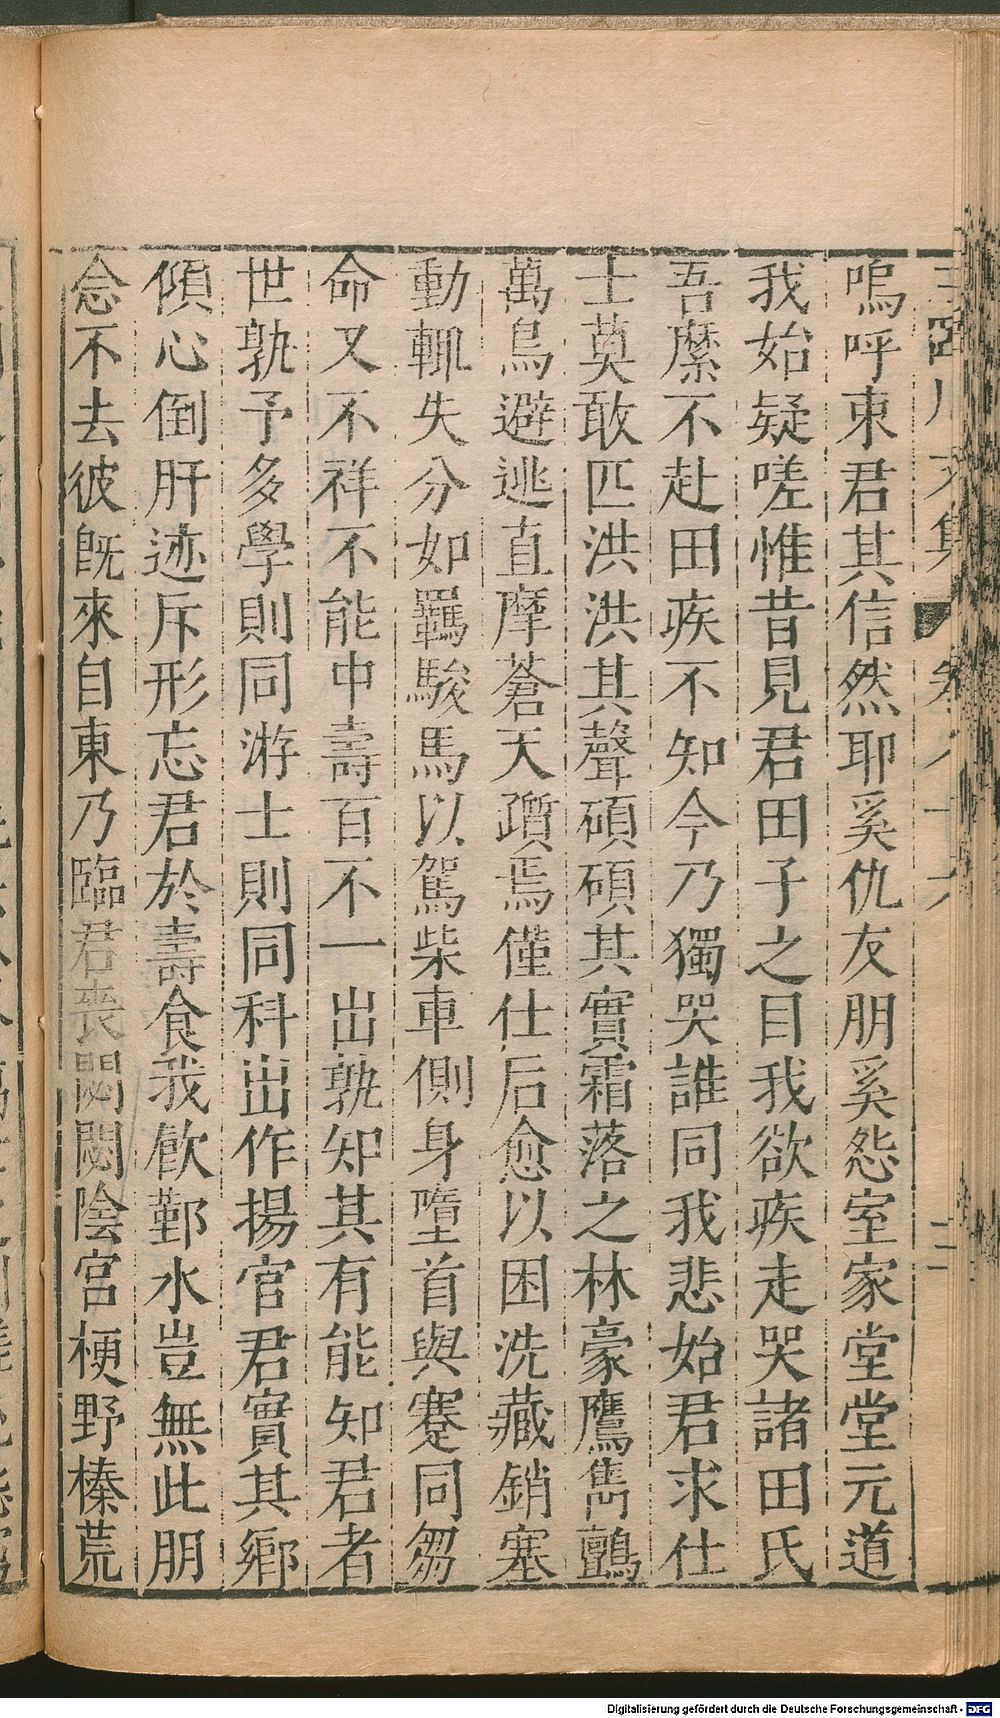 嗚呼東君其信然耶奚仇友朋奚怨室家堂堂元道
我始疑嗟惟昔見君田子之目我欲疾走哭諸田氏
吾縻不赴田疾不知今乃獨哭誰同我悲始君求仕
士莫敢匹洪洪其聲碩碩其實霜落之林豪鷹雋鸇
萬鳥避逃直摩蒼天躓焉僅仕后愈以困洗藏銷塞
動輒失分如羈駿馬以駕柴車側身墮首與蹇同芻
命又不祥不能中壽百不一出孰知其有能知君者
世孰予多學則同游士則同科出作揚官君實其鄉
傾心倒肝迹斥形忘君於壽食我飲鄞水豈無此朋
念不去彼既來自東乃臨君喪閟閟陰宮梗野榛荒
二
Digitalisierung gefördert durch die Deutsche Forschungsgemeinschaft - DFG